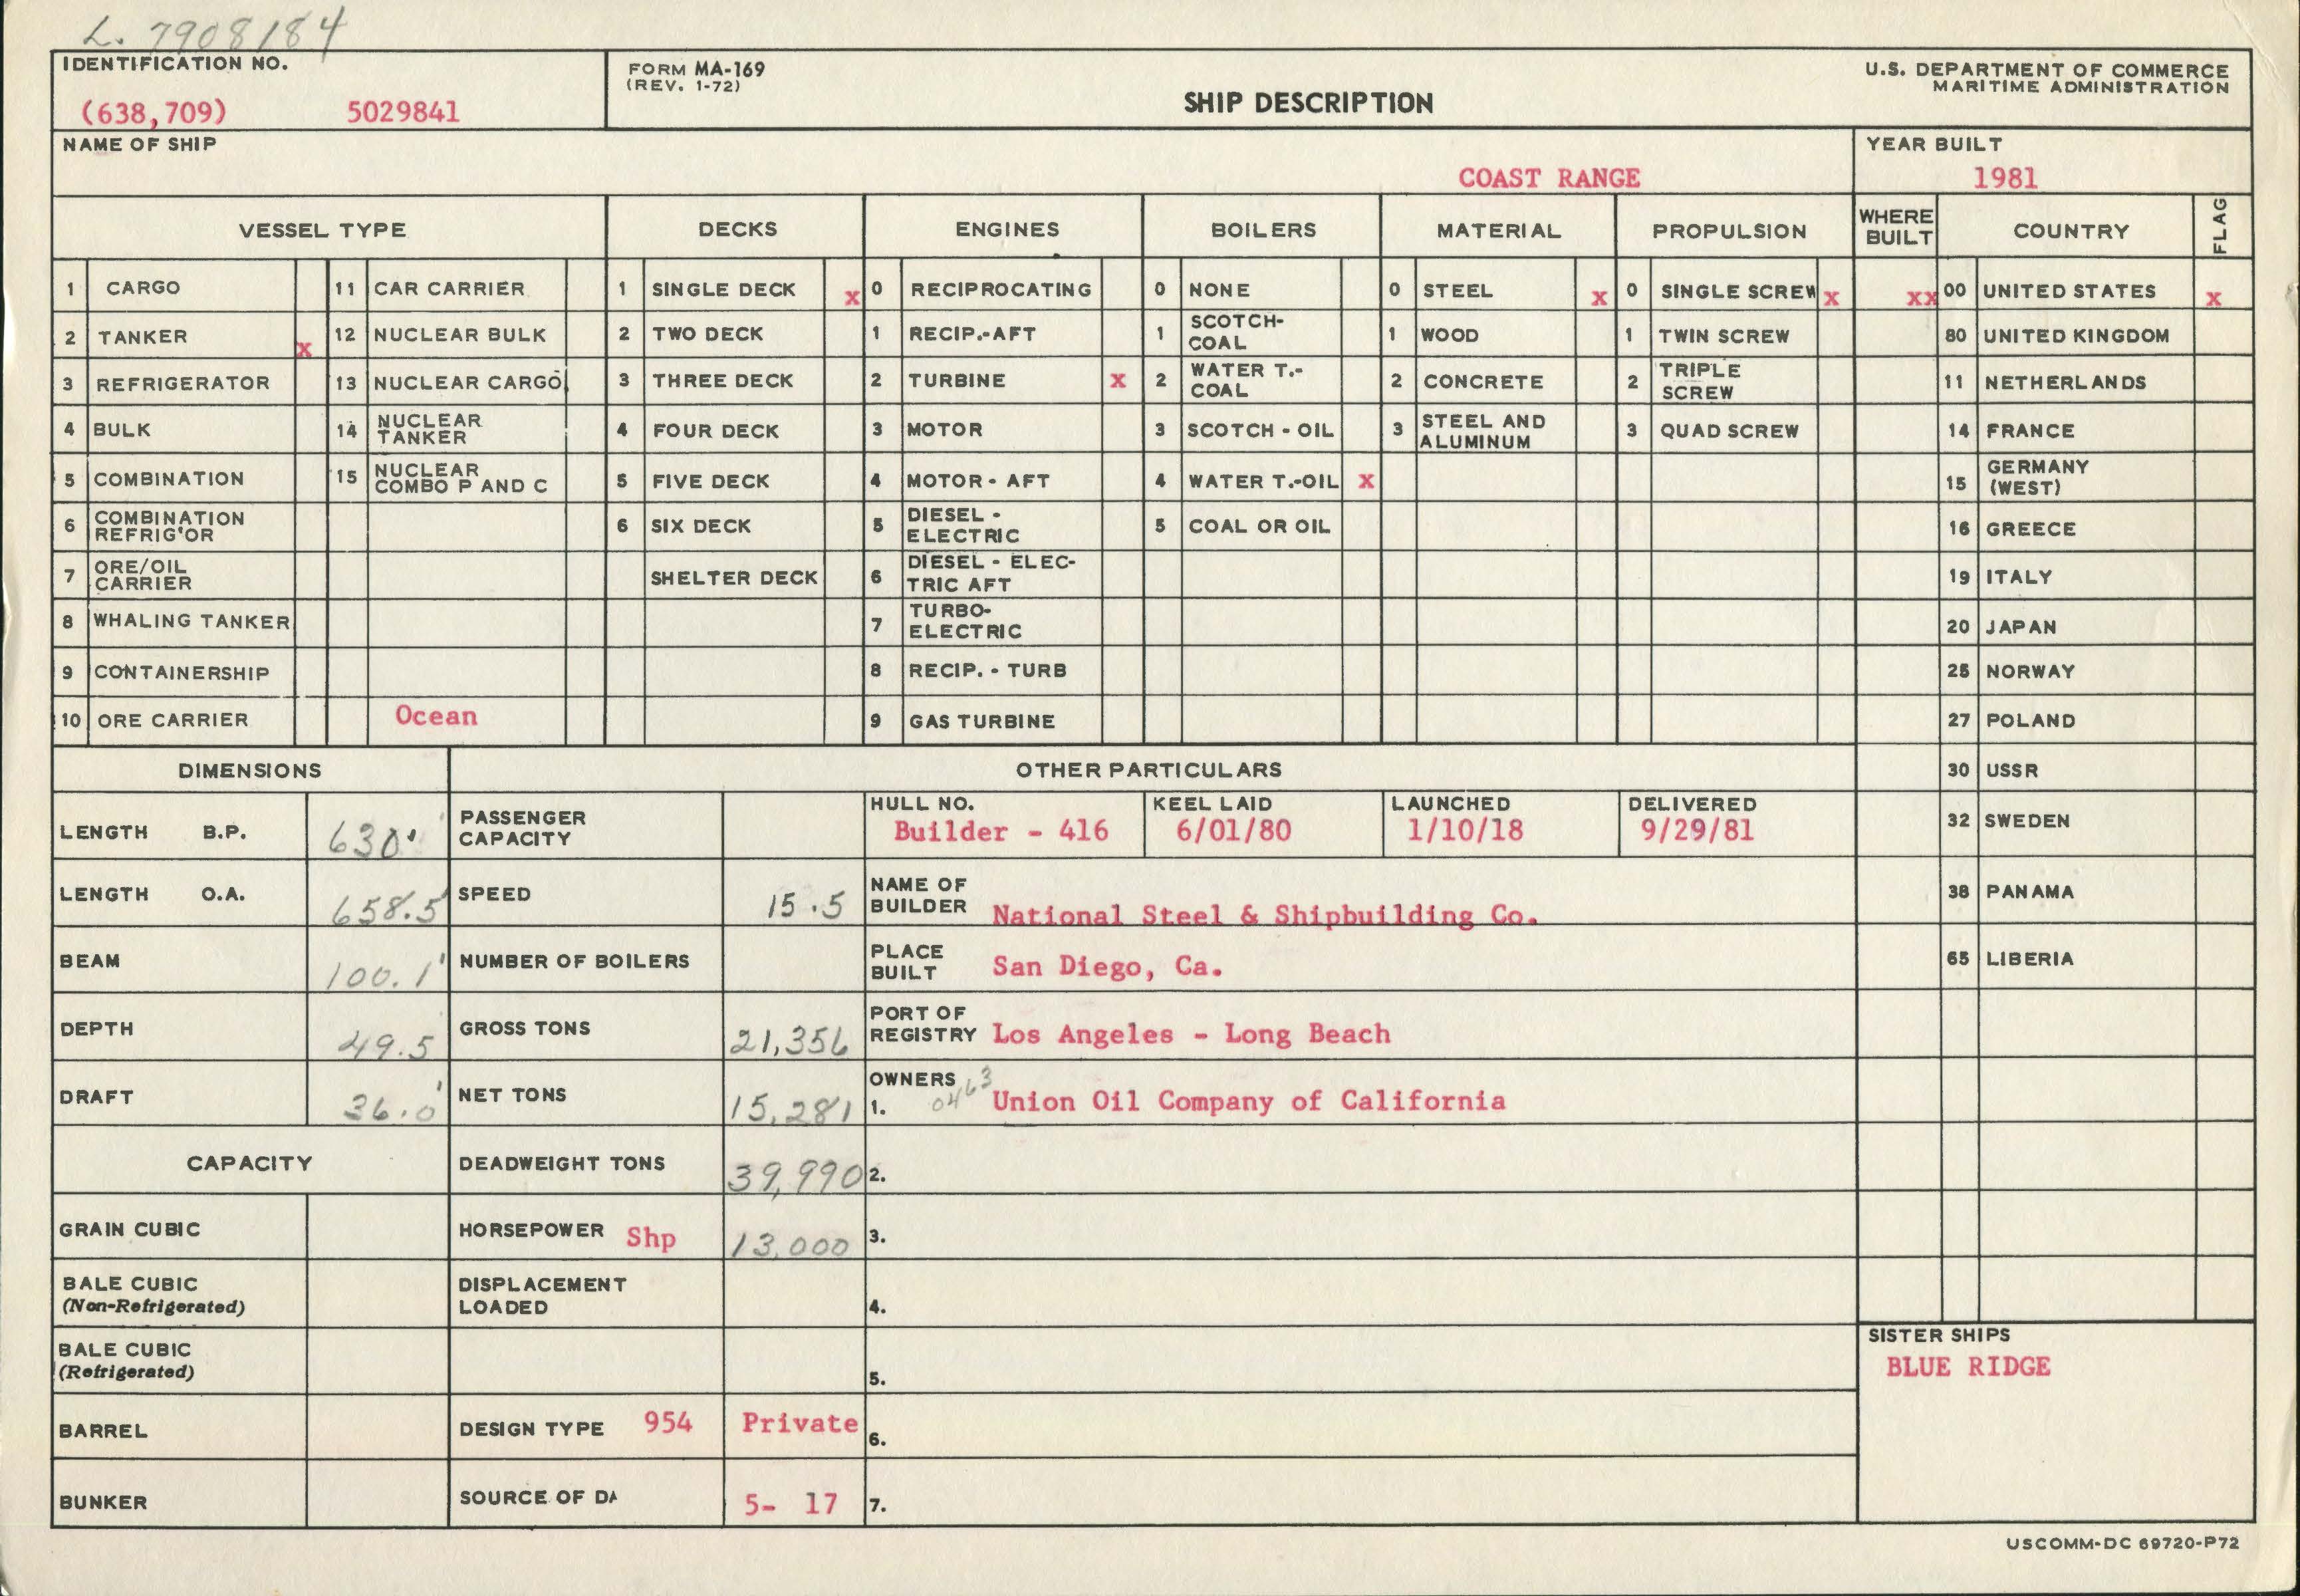 L. 7908184
IDENTIFICATION NO.
(638,709) 5029841
FORM MA-169
(REV. 1-72)
SHIP DESCRIPTION
U.S. DEPARTMENT OF COMMERCE
MARITIME ADMINISTRATION
NAME OF SHIP
COAST RANGE
YEAR BUILT
1981
VESSEL TYPE DECKS ENGINES BOILERS MATERIAL PROPULSION WHERE BUILT COUNTRY FLAG
1 CARGO 11 CAR CARRIER 1 SINGLE DECK x 0 RECIPROCATING 0 NONE 0 STEEL x 0 SINGLE SCREW x xx 00 UNITED STATES x
2 TANKER x 12 NUCLEAR BULK 2 TWO DECK 1 RECIP.-AFT 1 SCOTCH-COAL 1 WOOD 1 TWIN SCREW 80 UNITED KINGDOM
3 REFRIGERATOR 13 NUCLEAR CARGO 3 THREE DECK 2 TURBINE x 2 WATER T.-COAL 2 CONCRETE 2 TRIPLE SCREW 11 NETHERLANDS
4 BULK 14 NUCLEAR TANKER 4 FOUR DECK 3 MOTOR 3 SCOTCH - OIL 3 STEEL AND ALUMINUM 3 QUAD SCREW 14 FRANCE
5 COMBINATION 15 NUCLEAR COMBO P AND C 5 FIVE DECK 4 MOTOR - AFT 4 WATER T.-OIL x 15 GERMANY (WEST)
6 COMBINATION REFRIG'OR 6 SIX DECK 5 DIESEL - ELECTRIC 5 COAL OR OIL 16 GREECE
7 ORE/OIL CARRIER SHELTER DECK 6 DIESEL - ELEC-TRIC AFT 19 ITALY
8 WHALING TANKER 7 TURBO-ELECTRIC 20 JAPAN
9 CONTAINERSHIP 8 RECIP. - TURB 25 NORWAY
10 ORE CARRIER Ocean 9 GAS TURBINE 27 POLAND
DIMENSIONS OTHER PARTICULARS 30 USSR
LENGTH B.P. 630' PASSENGER CAPACITY HULL NO. Builder - 416 KEEL LAID 6/01/80 LAUNCHED 1/10/18 DELIVERED 9/29/81 32 SWEDEN
LENGTH O.A. 658.5' SPEED 15.5 NAME OF BUILDER National Steel & Shipbuilding Co. 38 PANAMA
BEAM 100.1' NUMBER OF BOILERS PLACE BUILT San Diego, Ca. 65 LIBERIA
DEPTH 49.5 GROSS TONS 21,356 PORT OF REGISTRY Los Angeles - Long Beach
DRAFT 36.0' NET TONS 15,281 OWNERS 1. 0463 Union Oil Company of California
CAPACITY DEADWEIGHT TONS 39,990 2.
GRAIN CUBIC HORSEPOWER Shp 13,000 3.
BALE CUBIC (Non-Refrigerated) DISPLACEMENT LOADED 4.
SISTER SHIPS
BALE CUBIC (Refrigerated) 5. BLUE RIDGE
BARREL DESIGN TYPE 954 Private 6.
BUNKER SOURCE OF DA 5- 17 7.
USCOMM-DC 69720-P72